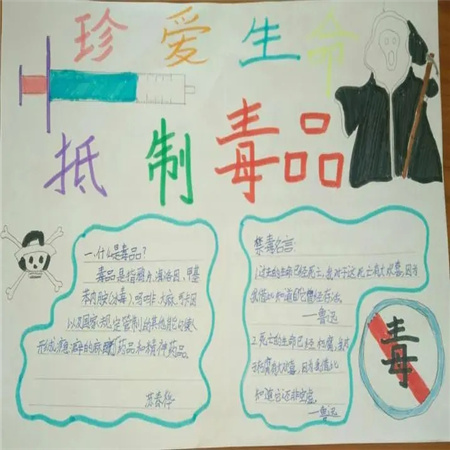 珍爱生命
抵制毒品
一.什么是毒品?
毒品是指鸦片、海洛因、甲基
苯丙胺(冰毒)、吗啡、大麻、可卡因
以及国家规定管制的其他能够使人
形成瘾癖的麻醉药品和精神药品。
禁毒名言
1.过去的生命已经死亡,我对于这死亡有大欢喜,因为
我借此知道它曾经存活。
—鲁迅
2.死亡的生命已经朽腐,我对
于朽腐有大欢喜,因为我借此
知道它还非空虚。
—鲁迅
毒